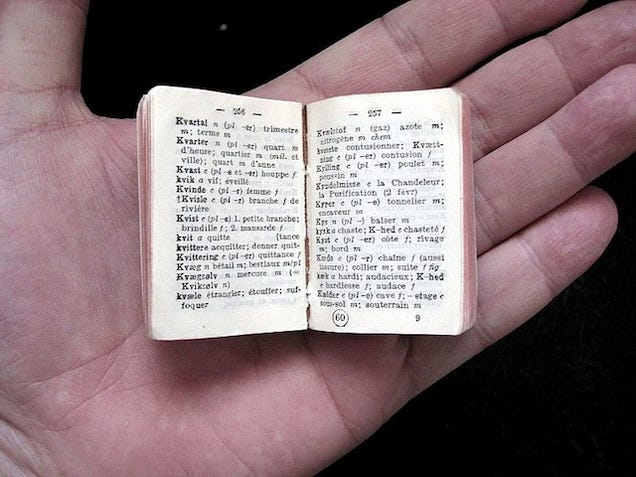 — 256 —
Kvartal n (pl -er) trimestre
m; terme m
Kvarter n (pl -er) quart m
d'heure; quartier m (mil. et
ville); quart m d'aune
Kvast c (pl -e et -er) houppe f
kvik a vif; éveillé
Kvinde c (pl -r) femme f
†Kvisle c (pl -r) branche f de
rivière
Kvist c (pl -e) 1. petite branche;
brindille f; 2. mansarde f
kvit a quitte [tance
kvittere acquitter; donner quit-
Kvittering c (pl -er) quittance f
Kvæg n bétail m; bestiaux m/pl
Kvægsølv n mercure m (=
Kviksølv n)
kvæle étrangler; étouffer; suf-
foquer
— 257 —
Kvælstof n (gaz) azote m;
nitrogène m chem
kvæste contusionner; Kvæst-
ning c (pl -er) contusion f
Kylling c (pl -er) poulet m;
poussin m
Kyndelmisse c la Chandeleur;
la Purification (2 févr)
Kyper c (pl -e) tonnelier m;
encaveur m
Kys n (pl -) baiser m
kysk a chaste; K-hed c chasteté f
Kyst c (pl -er) côte f; rivage
m; bord m
c (pl -r) chaîne f (aussi
tissure); collier m; suite f fig
a hardi; audacieux; K-hed
c hardiesse f; audace f
Kælder c (pl -e) cave f; - etage c
sous-sol m; souterrain m
60 9